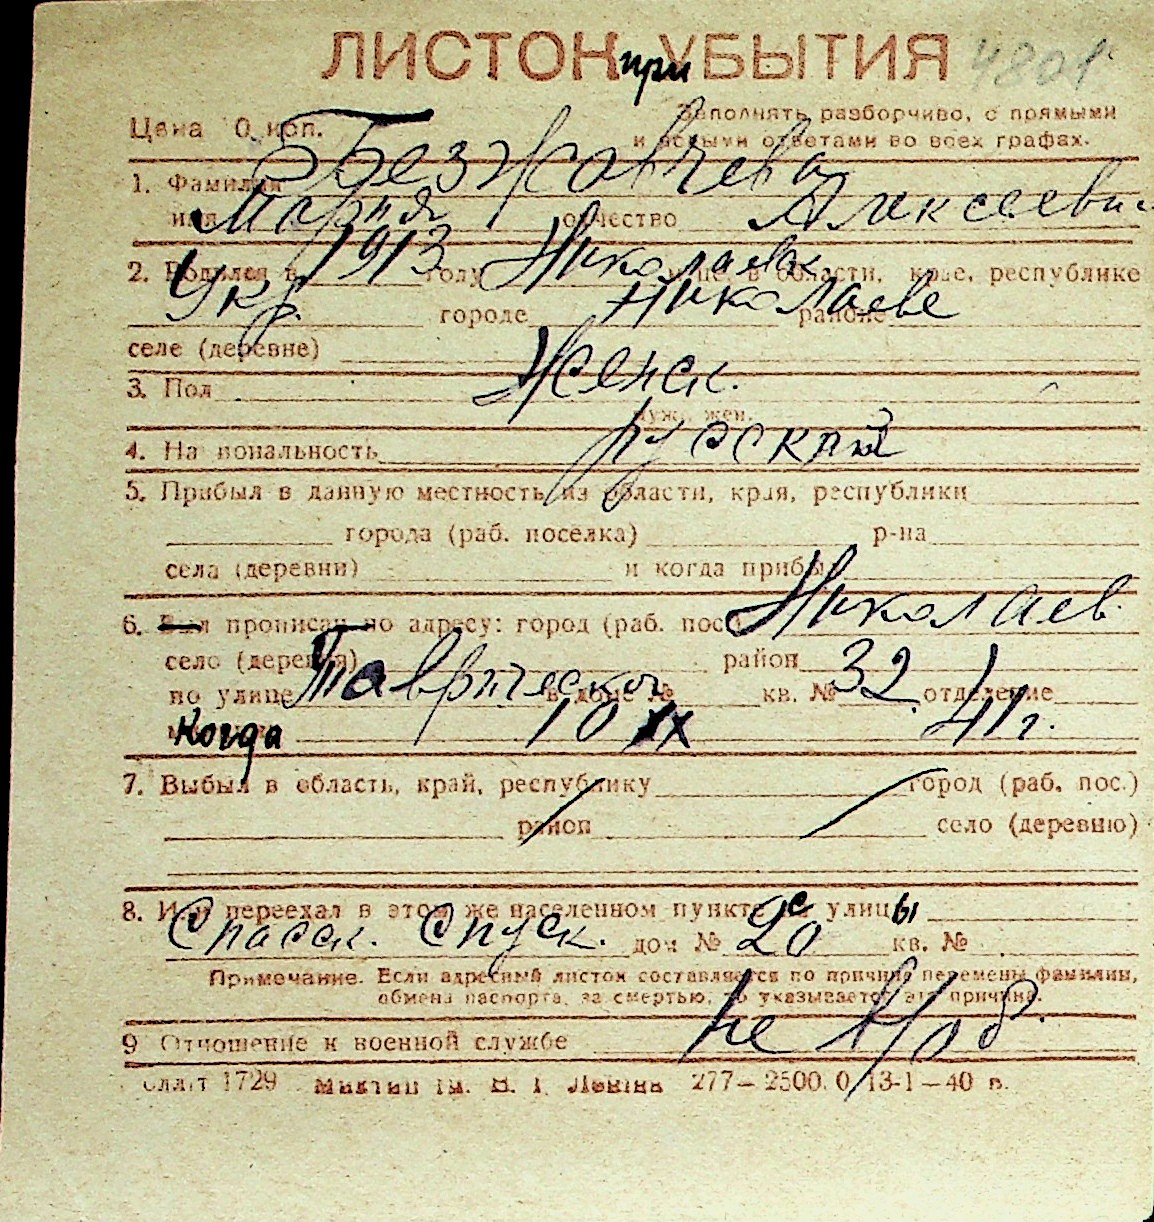 ЛИСТОК приУБЫТИЯ 4801
Цена 0 коп. Заполнять разборчиво, с прямыми
и ясными ответами во всех графах.
1. Фамилия Безжовчева
имя Мария отчество Алексеевна
2. Родился в 1913 году Николаевск области, крае, республике
Укр. городе Николаеве районе
селе (деревне)
3. Пол Женск.
муж., жен.
4. Национальность русский
5. Прибыл в данную местность из области, края, республики
города (раб. поселка) р-на
села (деревни) и когда прибыл
6. Был прописан по адресу: город (раб. пос.) Николаев
село (деревня) район
по улице Таврической в доме № кв. № 32 отделение
Когда 10 IX 41 г.
7. Выбыл в область, край, республику город (раб. пос.)
район село (деревню)
8. Или переехал в этом же населенном пункте с улицы
Спасск. Спуск. дом № 20 кв. №
Примечание. Если адресный листок составляется по причине перемены фамилии,
обмена паспорта, за смертью, то указывается эта причина.
9 Отношение к военной службе не
1729 277—2500.0 13-1—40 в.